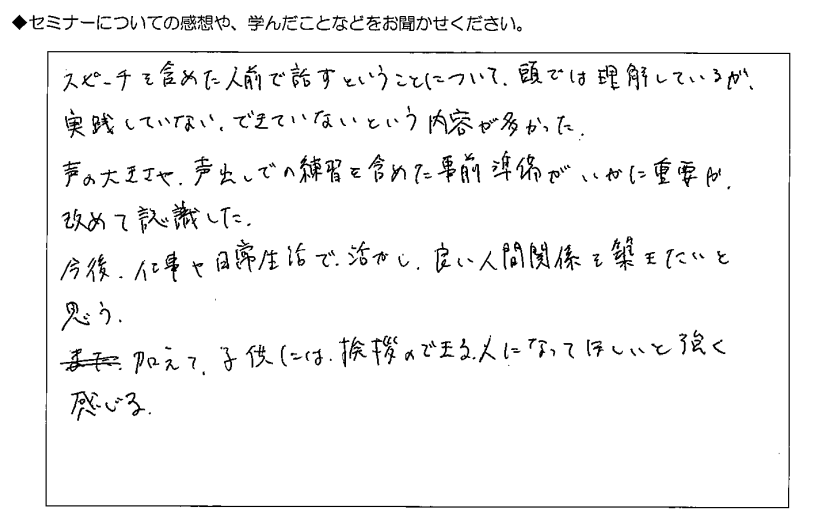 ◆セミナーについての感想や、学んだことなどをお聞かせください。
スピーチを含めた人前で話すということについて、頭では理解しているが、
実践していない、できていないという内容が多かった。
声の大きさや、声出しでの練習を含めた事前準備がいかに重要か、
改めて認識した。
今後、仕事や日常生活で、活かし、良い人間関係を築きたいと
思う。
また、加えて、子供には、挨拶のできる人になってほしいと強く
感じる。